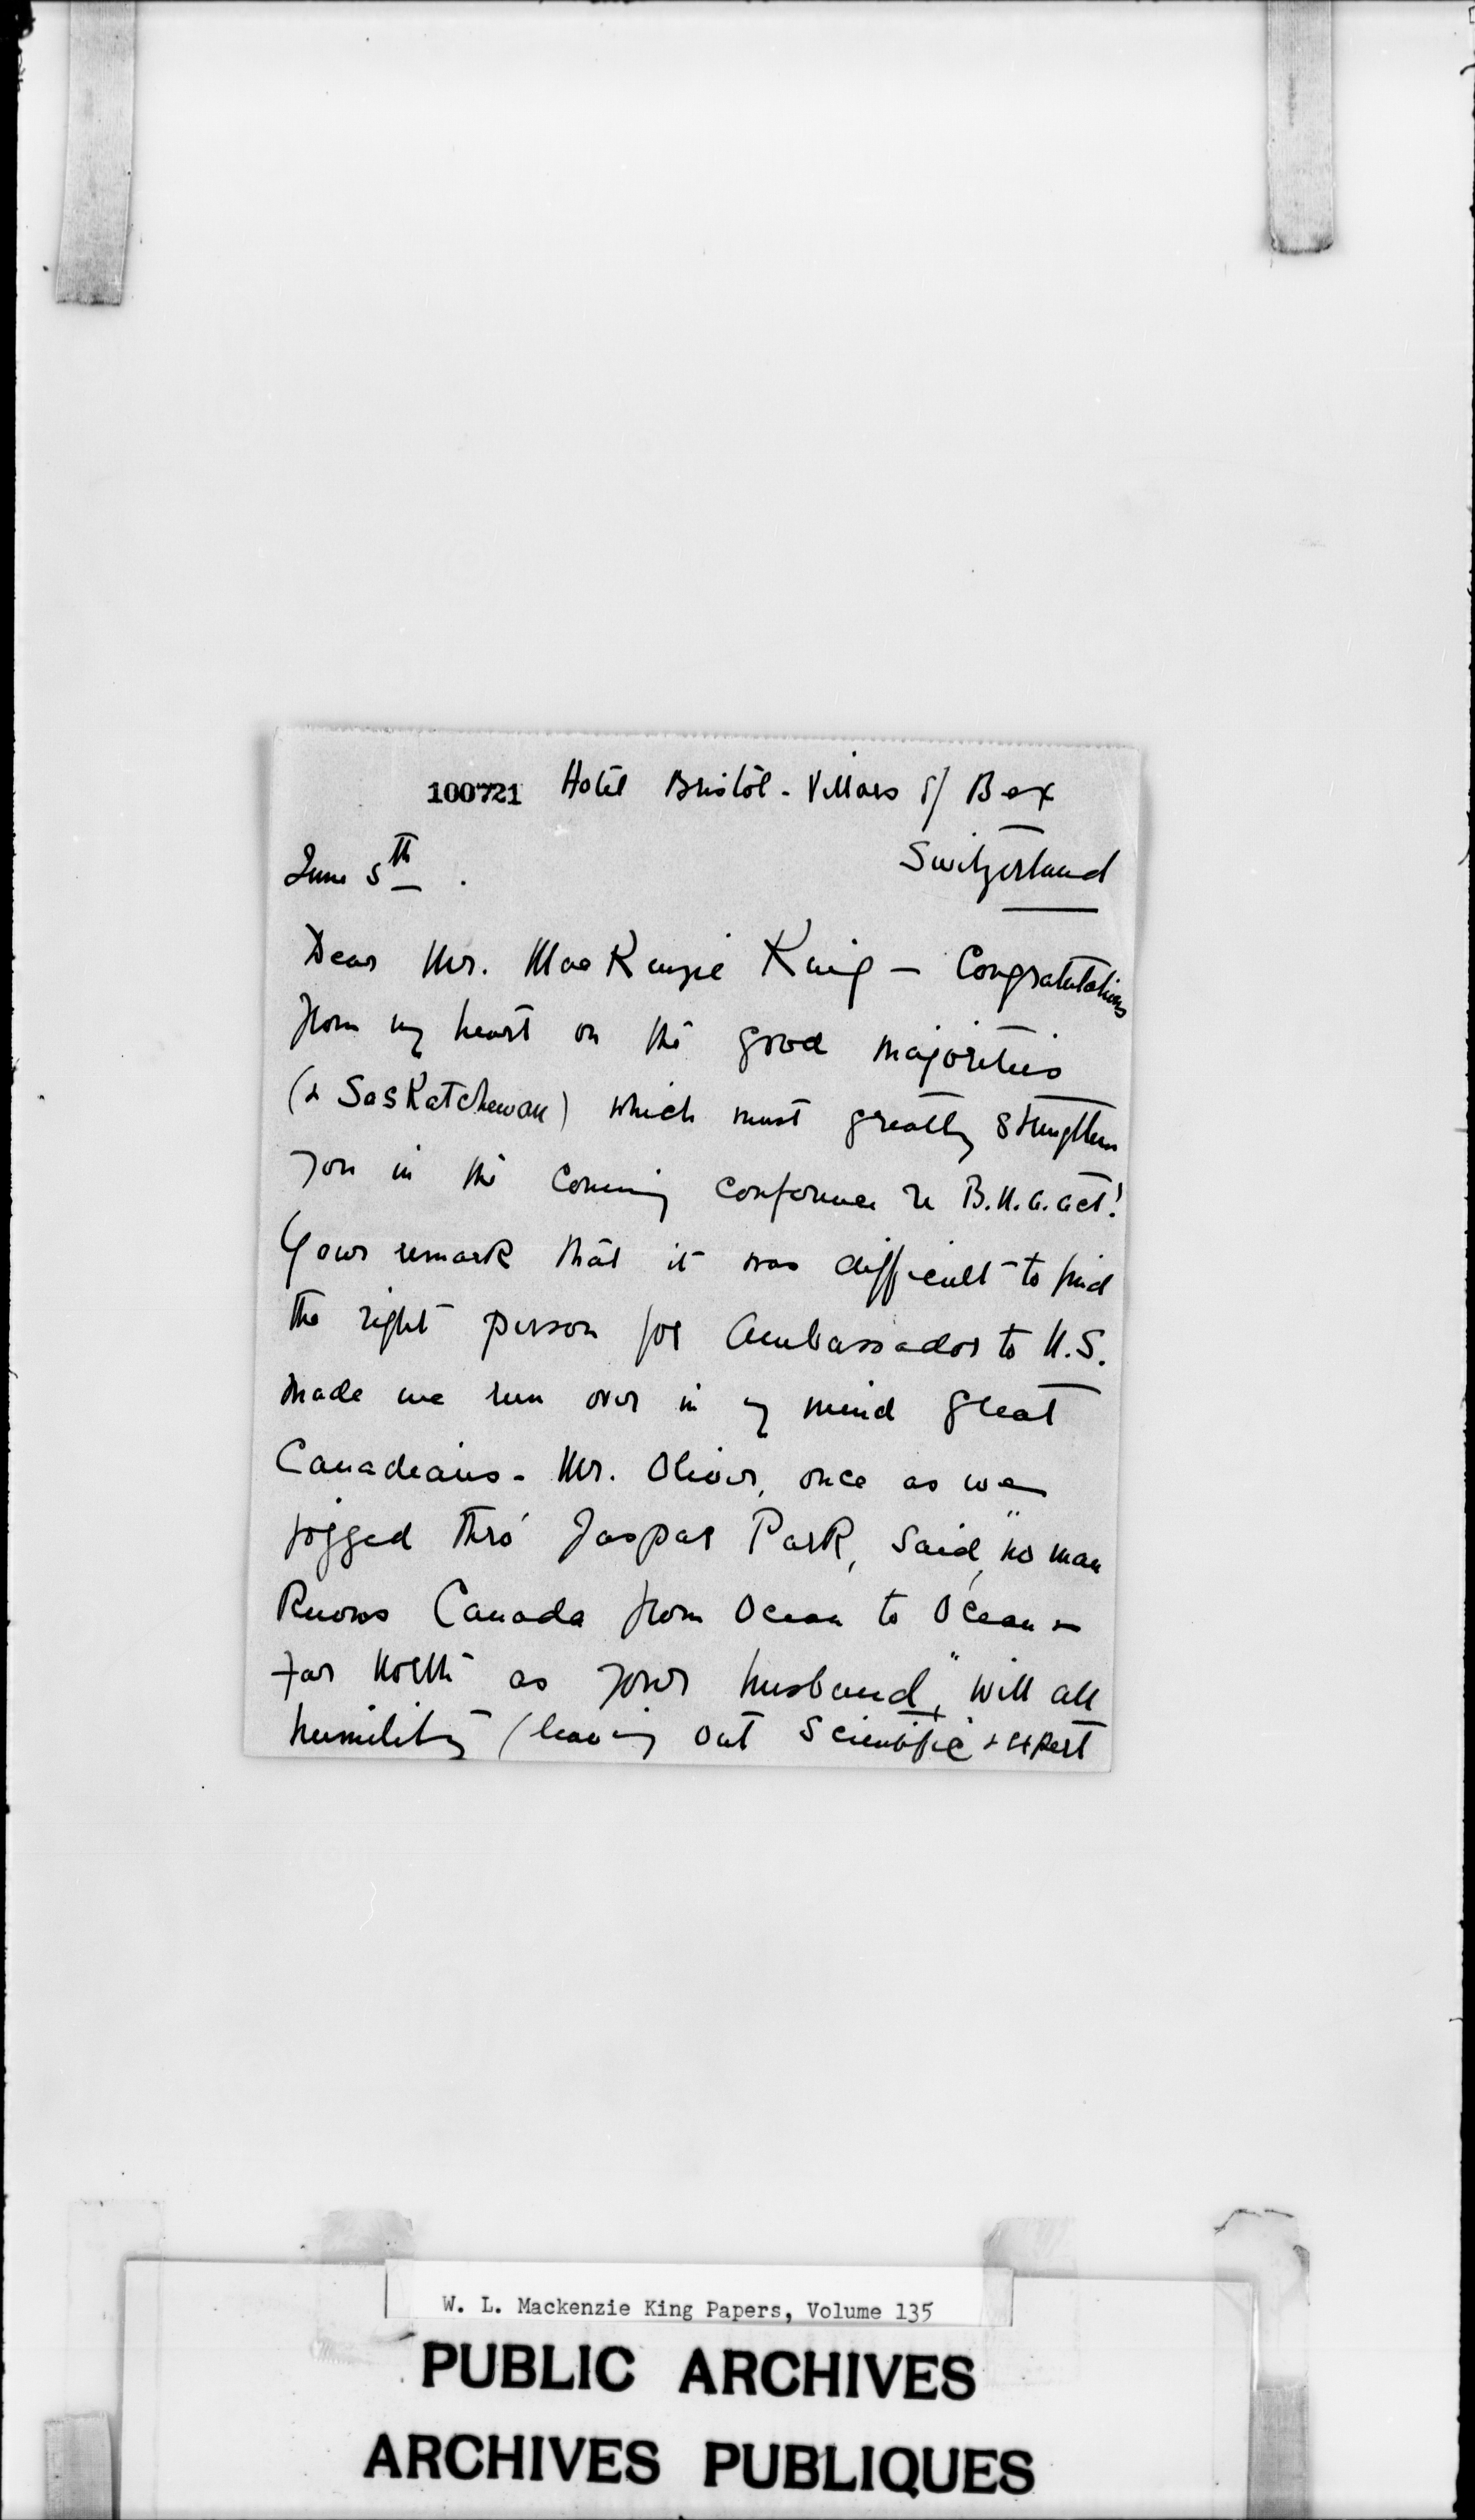 100721 Hotel Bristol - Villars s/ Bex
Switzerland
June 5th.
Dear Mr. MacKenzie King — Congratulations
from my heart on the good majorities
(& Saskatchewan) which must greatly strengthen
you in the coming conference re B.N.A. act!
Your remark that it was difficult to find
the right person for Ambassador to U.S.
made me run over in my mind great
Canadians - Mr. Oliver, once as we
jogged thro' Jaspar Park, said, "no man
knows Canada from Ocean to Ocean &
far North as your husband," will all
humility (leaving out Scientific & expert
W. L. Mackenzie King Papers, Volume 135
PUBLIC ARCHIVES
ARCHIVES PUBLIQUES